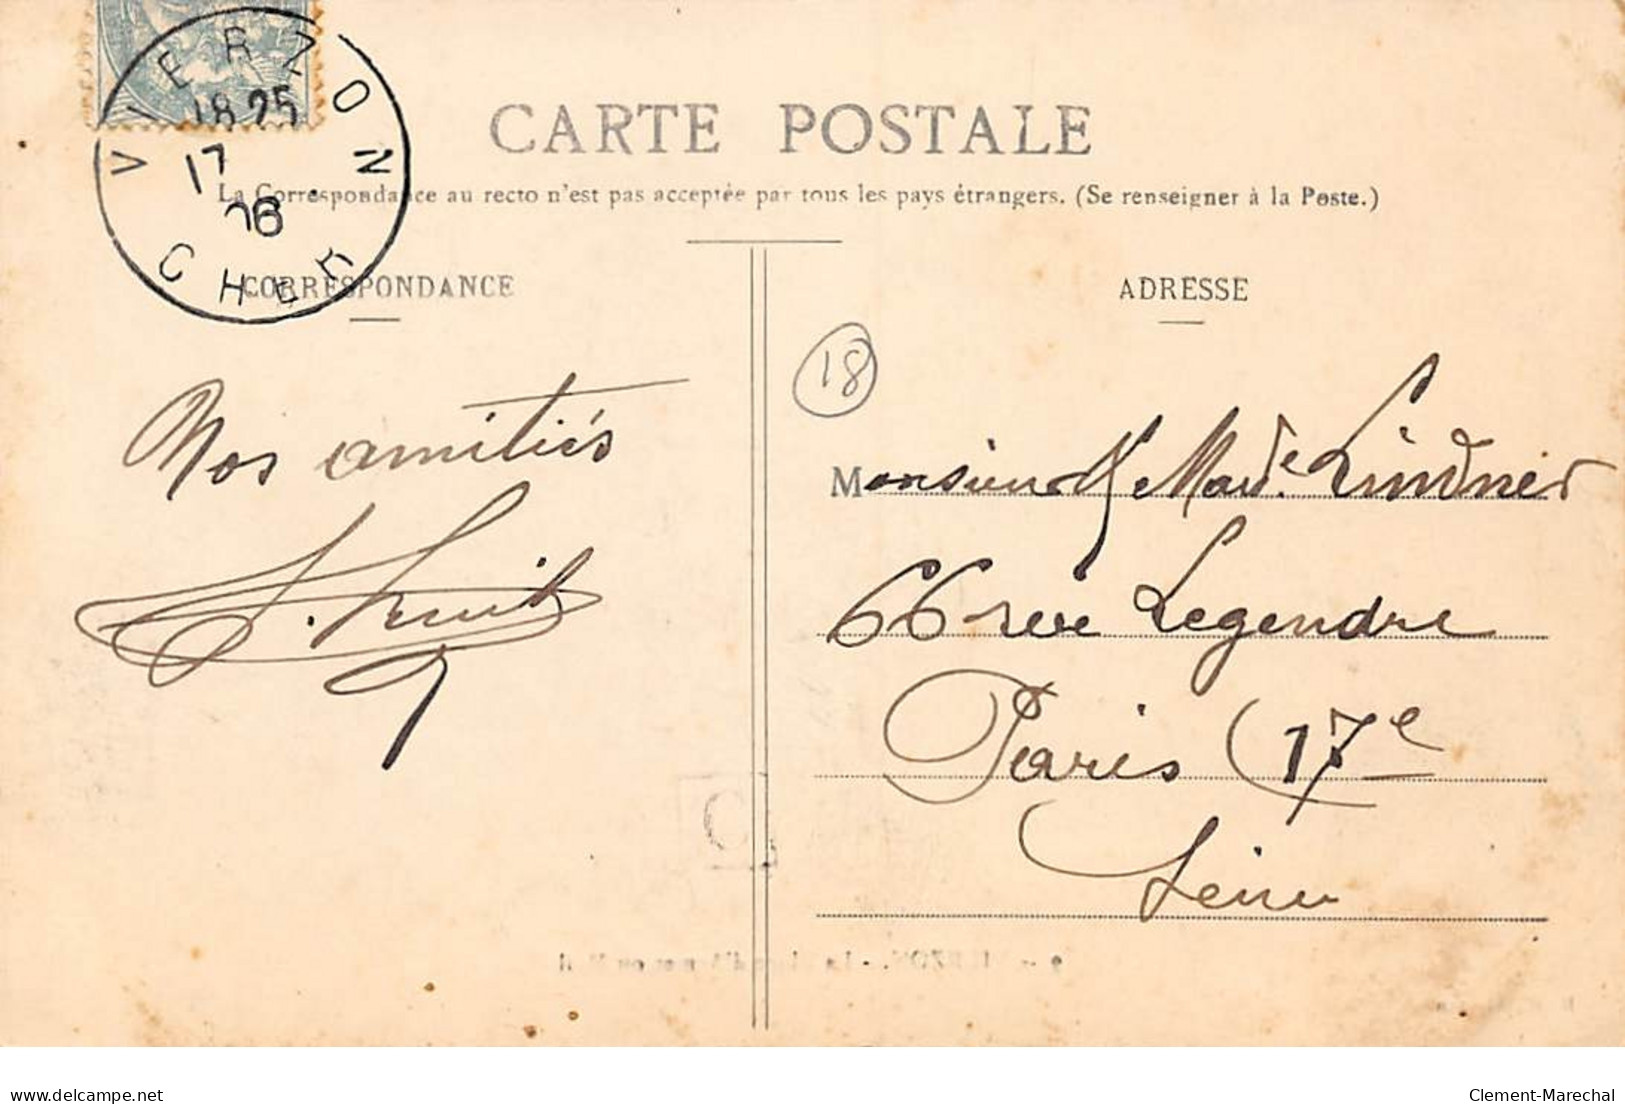 VIERZON
18 25
17
06
CHER
CARTE POSTALE
La Correspondance au recto n'est pas acceptée par tous les pays étrangers. (Se renseigner à la Poste.)
CORRESPONDANCE
Nos amitiés
ADRESSE
18
Monsieur & Made Lindner
66 rue Legendre
Paris (17e
Seine
Clement-Marechal